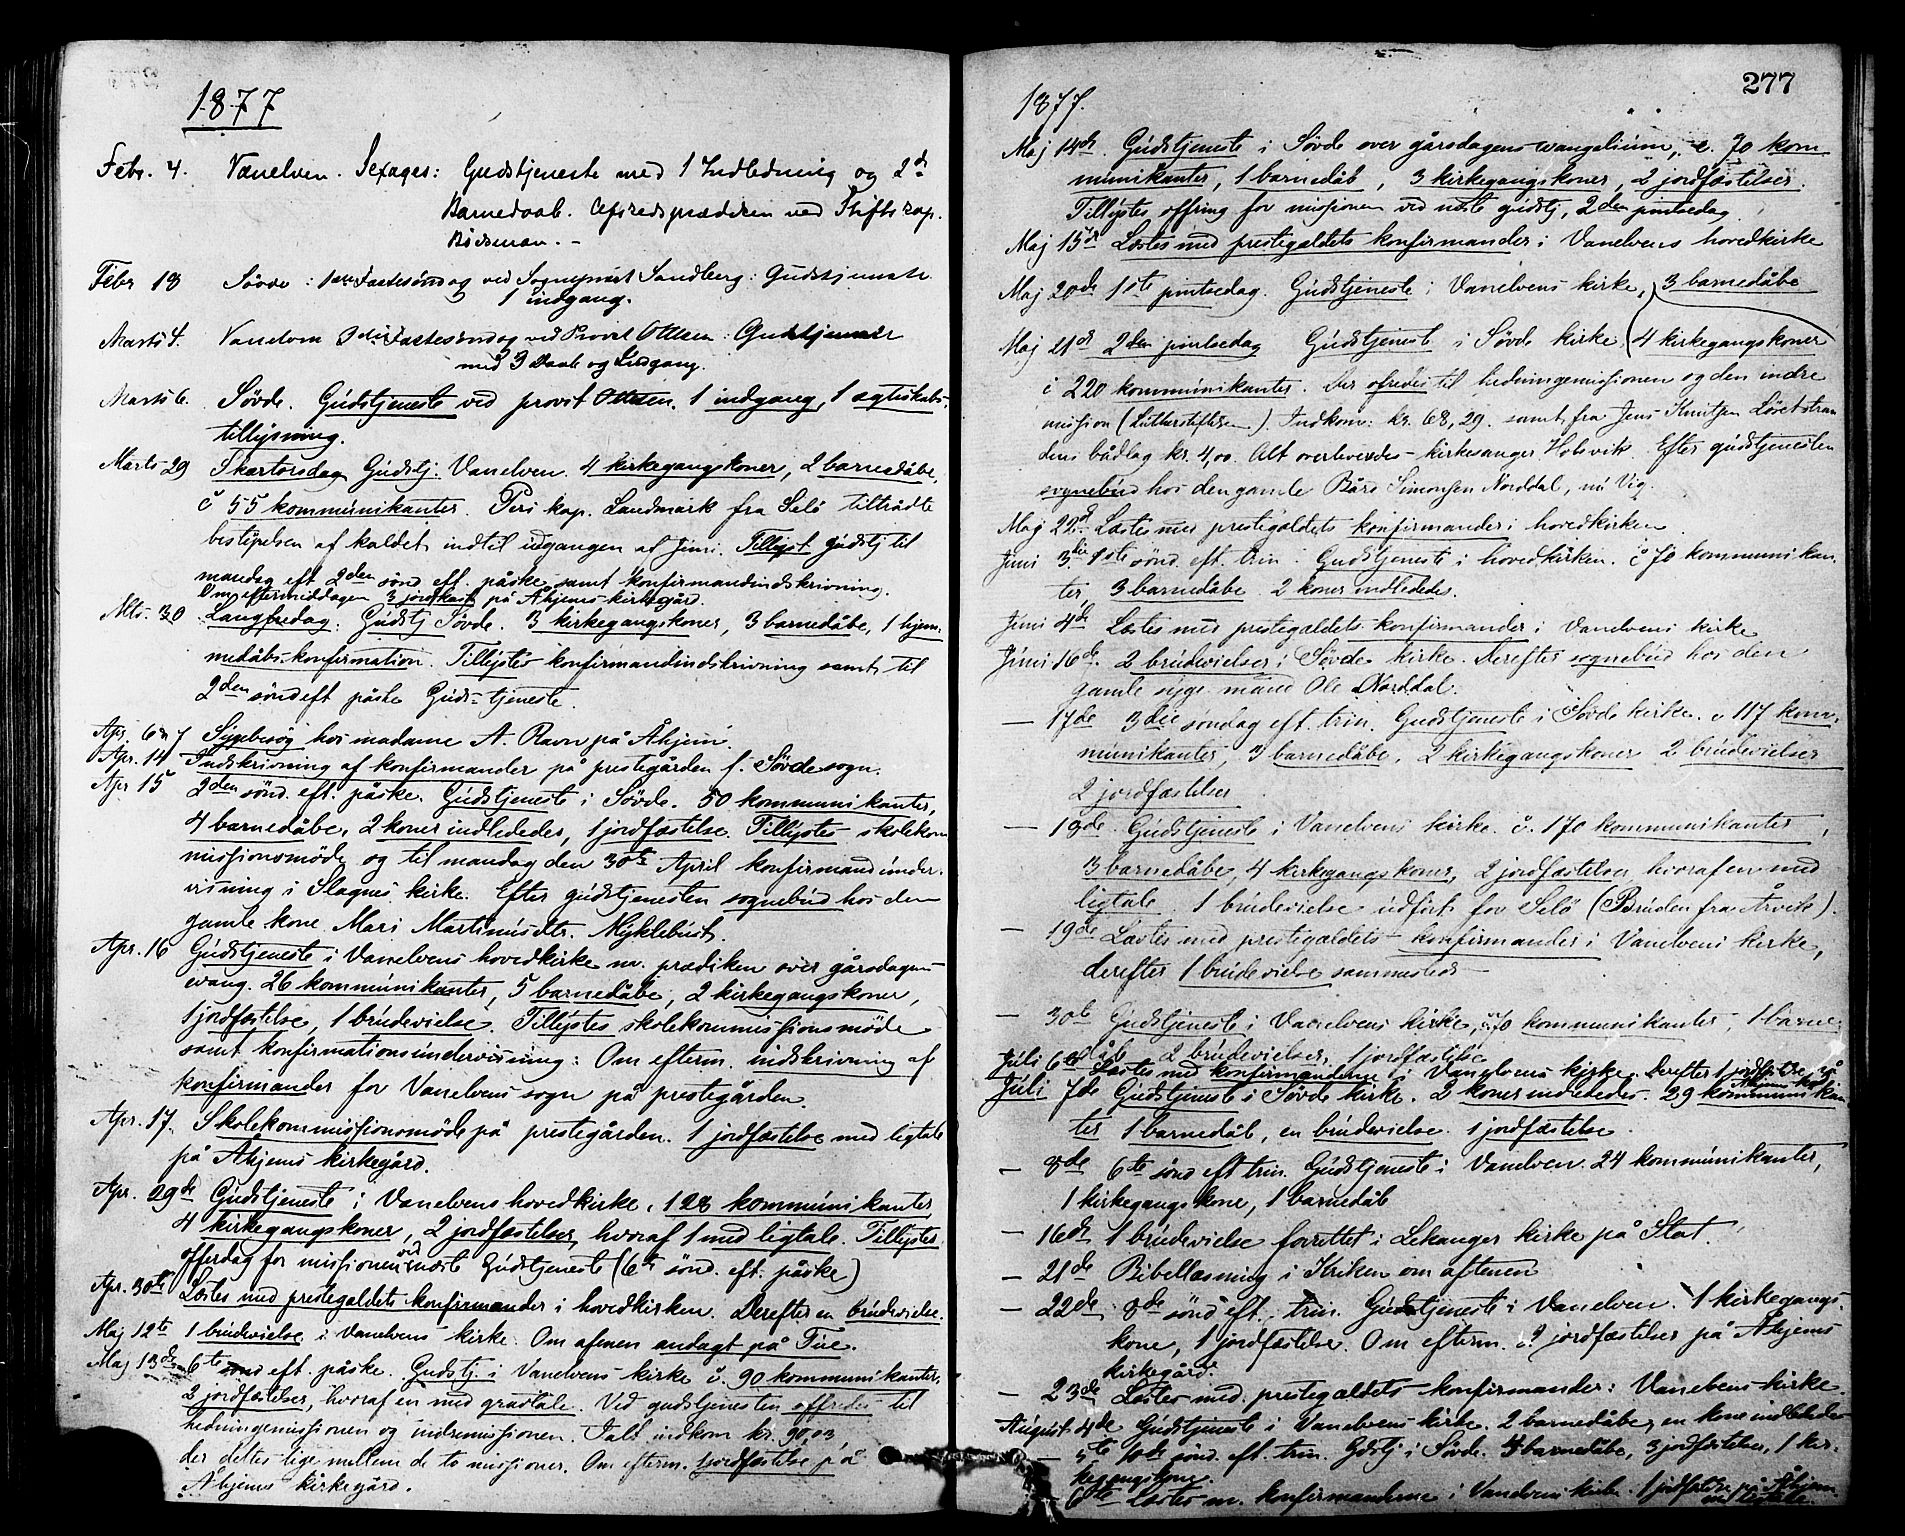 1877
Febr. 4. Vanelven. Sexages: Gudstjeneste med 1 Indledning og 2de
Barnedaab. Afskedsprædiken ved Stiftskap.
Bödsman. -
Febr 18 Søvde: 1ste Fastesöndag ved Sogneprest Sandberg: Gudstjeneste
1 indgang.
Marts 4. Vanelven 3die Fastesöndag ved Provst Ottesen: Gudstjeneste
med 3 Daab og Indgang.
Marts 6. Søvde. Gudstjeneste ved provst Ottesen. 1 indgang, 1 ægteskabs-
tillysning.
Marts 29 Skærtorsdag Gudstj. Vanelven. 4 kirkegangskoner, 2 barnedåbe,
c 55 kommunikanter. Pers. kap. Landmark fra Selö tiltrådte
bestyrelsen af kaldet indtil udgangen af Juni. Tillyst gudstj til
mandag eft 2den sönd eft. påske samt konfirmandindskrivning.
Om eftermiddagen 3 jordkast på Åhjems kirkegård.
Mts. 30 Langfredag: Gudstj Søvde. 3 kirkegangskoner, 3 barnedåbe, 1 hjem-
medåbs-konfirmation. Tillystes konfirmandindskrivning samt til
2den sönd eft påske Guds-tjeneste.
Apr. 6 & 7 Sygebesøg hos madame A. Ravn på Åhjem.
Apr. 14 Indskrivning af konfirmander på prestegården f. Søvde sogn.
Apr 15 2den sönd. eft. påske. Gudstjeneste i Søvde. 50 kommunikanter,
4 barnedåbe, 2 koner indlededes, 1 jordfæstelse. Tillystes skolekom-
missionsmöde og til mandag den 30te April konfirmandunder-
visning i Slagnes kirke. Efter gudstjenesten sognebud hos den
gamle kone Mari Martinusdtr. Myklebust.
Apr. 16 Gudstjeneste i Vanelvens hovedkirke m. prædiken over gårsdagens
evang. 26 kommunikanter, 5 barnedåbe, 2 kirkegangskoner,
1 jordfæstelse, 1 brudevielse. Tillystes skolekommissionsmöde
samt konfirmationsundervisning: Om efterm. indskrivning af
konfirmander for Vanelvens sogn på prestegården.
Apr. 17. Skolekommissionsmöde på prestegården. 1 jordfæstelse med ligtale
på Åhjems kirkegård.
Apr. 29de Gudstjeneste i Vanelvens hovedkirke. 128 kommunikanter
4 kirkegangskoner, 2 jordfæstelser, hvoraf 1 med ligtale. Tillystes
offerdag for missionen ved næste Gudstjeneste (6te sönd. eft. påske)
Apr. 30te Læstes med prestegjældets konfirmander i hovedkirken. Derefter en brudevielse.
Maj 12te 1 brudevielse i Vanelvens kirke. Om aftnen andagt på Tue.
Maj 13de 6te sönd eft. påske. Gudstj. i Vanelvens kirke c. 90 kommunikanter,
2 jordfæstelser, hvoraf en med gravtale. Ved gudstjenesten offredes til
hedningemissionen og indremissionen. Ialt indkom kr. 90,03,
der deltes lige mellem de to missioner. Om efterm. 1 jordfæstelse på
Åhjems kirkegård.
277
1877.
Maj 14de. Gudstjeneste i Søvde over gårsdagens evangelium, c. 70 kom-
munikanter, 1 barnedåb, 3 kirkegangskoner, 2 jordfæstelser.
Tillystes offring for missionen ved næste gudstj, 2den pintsedag.
Maj 15de Læstes med prestegjældets konfirmander i Vanelvens hovedkirke
Maj 20de 1ste pintsedag. Gudstjeneste i Vanelvens kirke, 3 barnedåbe
Maj 21de 2den pintsedag Gudstjeneste i Søvde kirke (4 kirkegangskoner
c 220 kommunikanter. Der ofredes til hedningemissionen og den indre
mission (Lutherstiftelsen). Indkom: kr. 68,29. samt fra Jens Knutsen Løsetstran-
dens bådlag kr. 4,00. Alt overleveredes kirkesanger Holsvik. Efter gudstjenesten
sognebud hos den gamle Bård Simonsen Norddal, nu Vig.
Maj 22de Læstes med prestegjældets konfirmander i hovedkirken
Juni 3die 1ste sönd. eft. trin. Gudstjeneste i hovedkirken. c 70 kommunikan-
ter, 3 barnedåbe 2 koner indlededes.
Juni 4de Læstes med prestegjældets konfirmander i Vanelvens kirke
Juni 16de. 2 brudevielser i Søvde kirke. Derefter sognebud hos den
gamle syge mand Ole Norddal.
— 17de 3die söndag eft. trin. Gudstjeneste i Søvde kirke. c 117 kom-
munikanter, 3 barnedåbe, 2 kirkegangskoner 2 brudevielser
2 jordfæstelser
— 19de. Gudstjeneste i Vanelvens kirke. c. 170 kommunikanter,
3 barnedåbe, 4 kirkegangskoner, 2 jordfæstelser, hvoraf en med
ligtale. 1 brudevielse udfört for Selö (Bruden fra Årvik).
— 19de Læstes med prestegjældets konfirmander i Vanelvens kirke,
derefter 1 brudevielse sammesteds
— 30te Gudstjeneste i Vanelvens kirke, c 70 kommunikanter, 1 barne-
dåb 2 brudevielser, 1 jordfæstelse
Juli 6te Læstes med konfirmanderne i Vanelvens kirke. Derefter 1 jordfæstelse på
Åhjems
Juli 7de Gudstjeneste i Søvde kirke. 2 koner indlededes. 29 kommunikan-
ter 1 barnedåb, en brudevielse. 1 jordfæstelse.
— 8de 6te sönd eft trin. Gudstjeneste i Vanelven. 24 kommunikanter,
1 kirkegangskone, 1 barnedåb
— 16de 1 brudevielse forrettet i Lekanger kirke på Stat.
— 21de Bibellæsning i Kriken om aftenen
— 22de. 8de sönd eft. trin. Gudstjeneste i Vanelven. 1 kirkegangs-
kone, 1 jordfæstelse. Om efterm. 2 jordfæstelser på Åhjems
kirkegård.
— 23de Læstes med prestegjældets konfirmander i Vanelvens kirke.
August 4de Gudstjeneste i Vanelvens kirke. 2 barnedåbe, en kone indlededes
— 5te 10de sönd. eft. trin. Gdstj i Søvde. 4 barnedåbe, 3 jordfæstelser, 1 kir-
kegangskone.
6te Læstes m. konfirmanderne i Vanelvens kirke. 1 jordfæstelse på Åhjem
med ligtale.